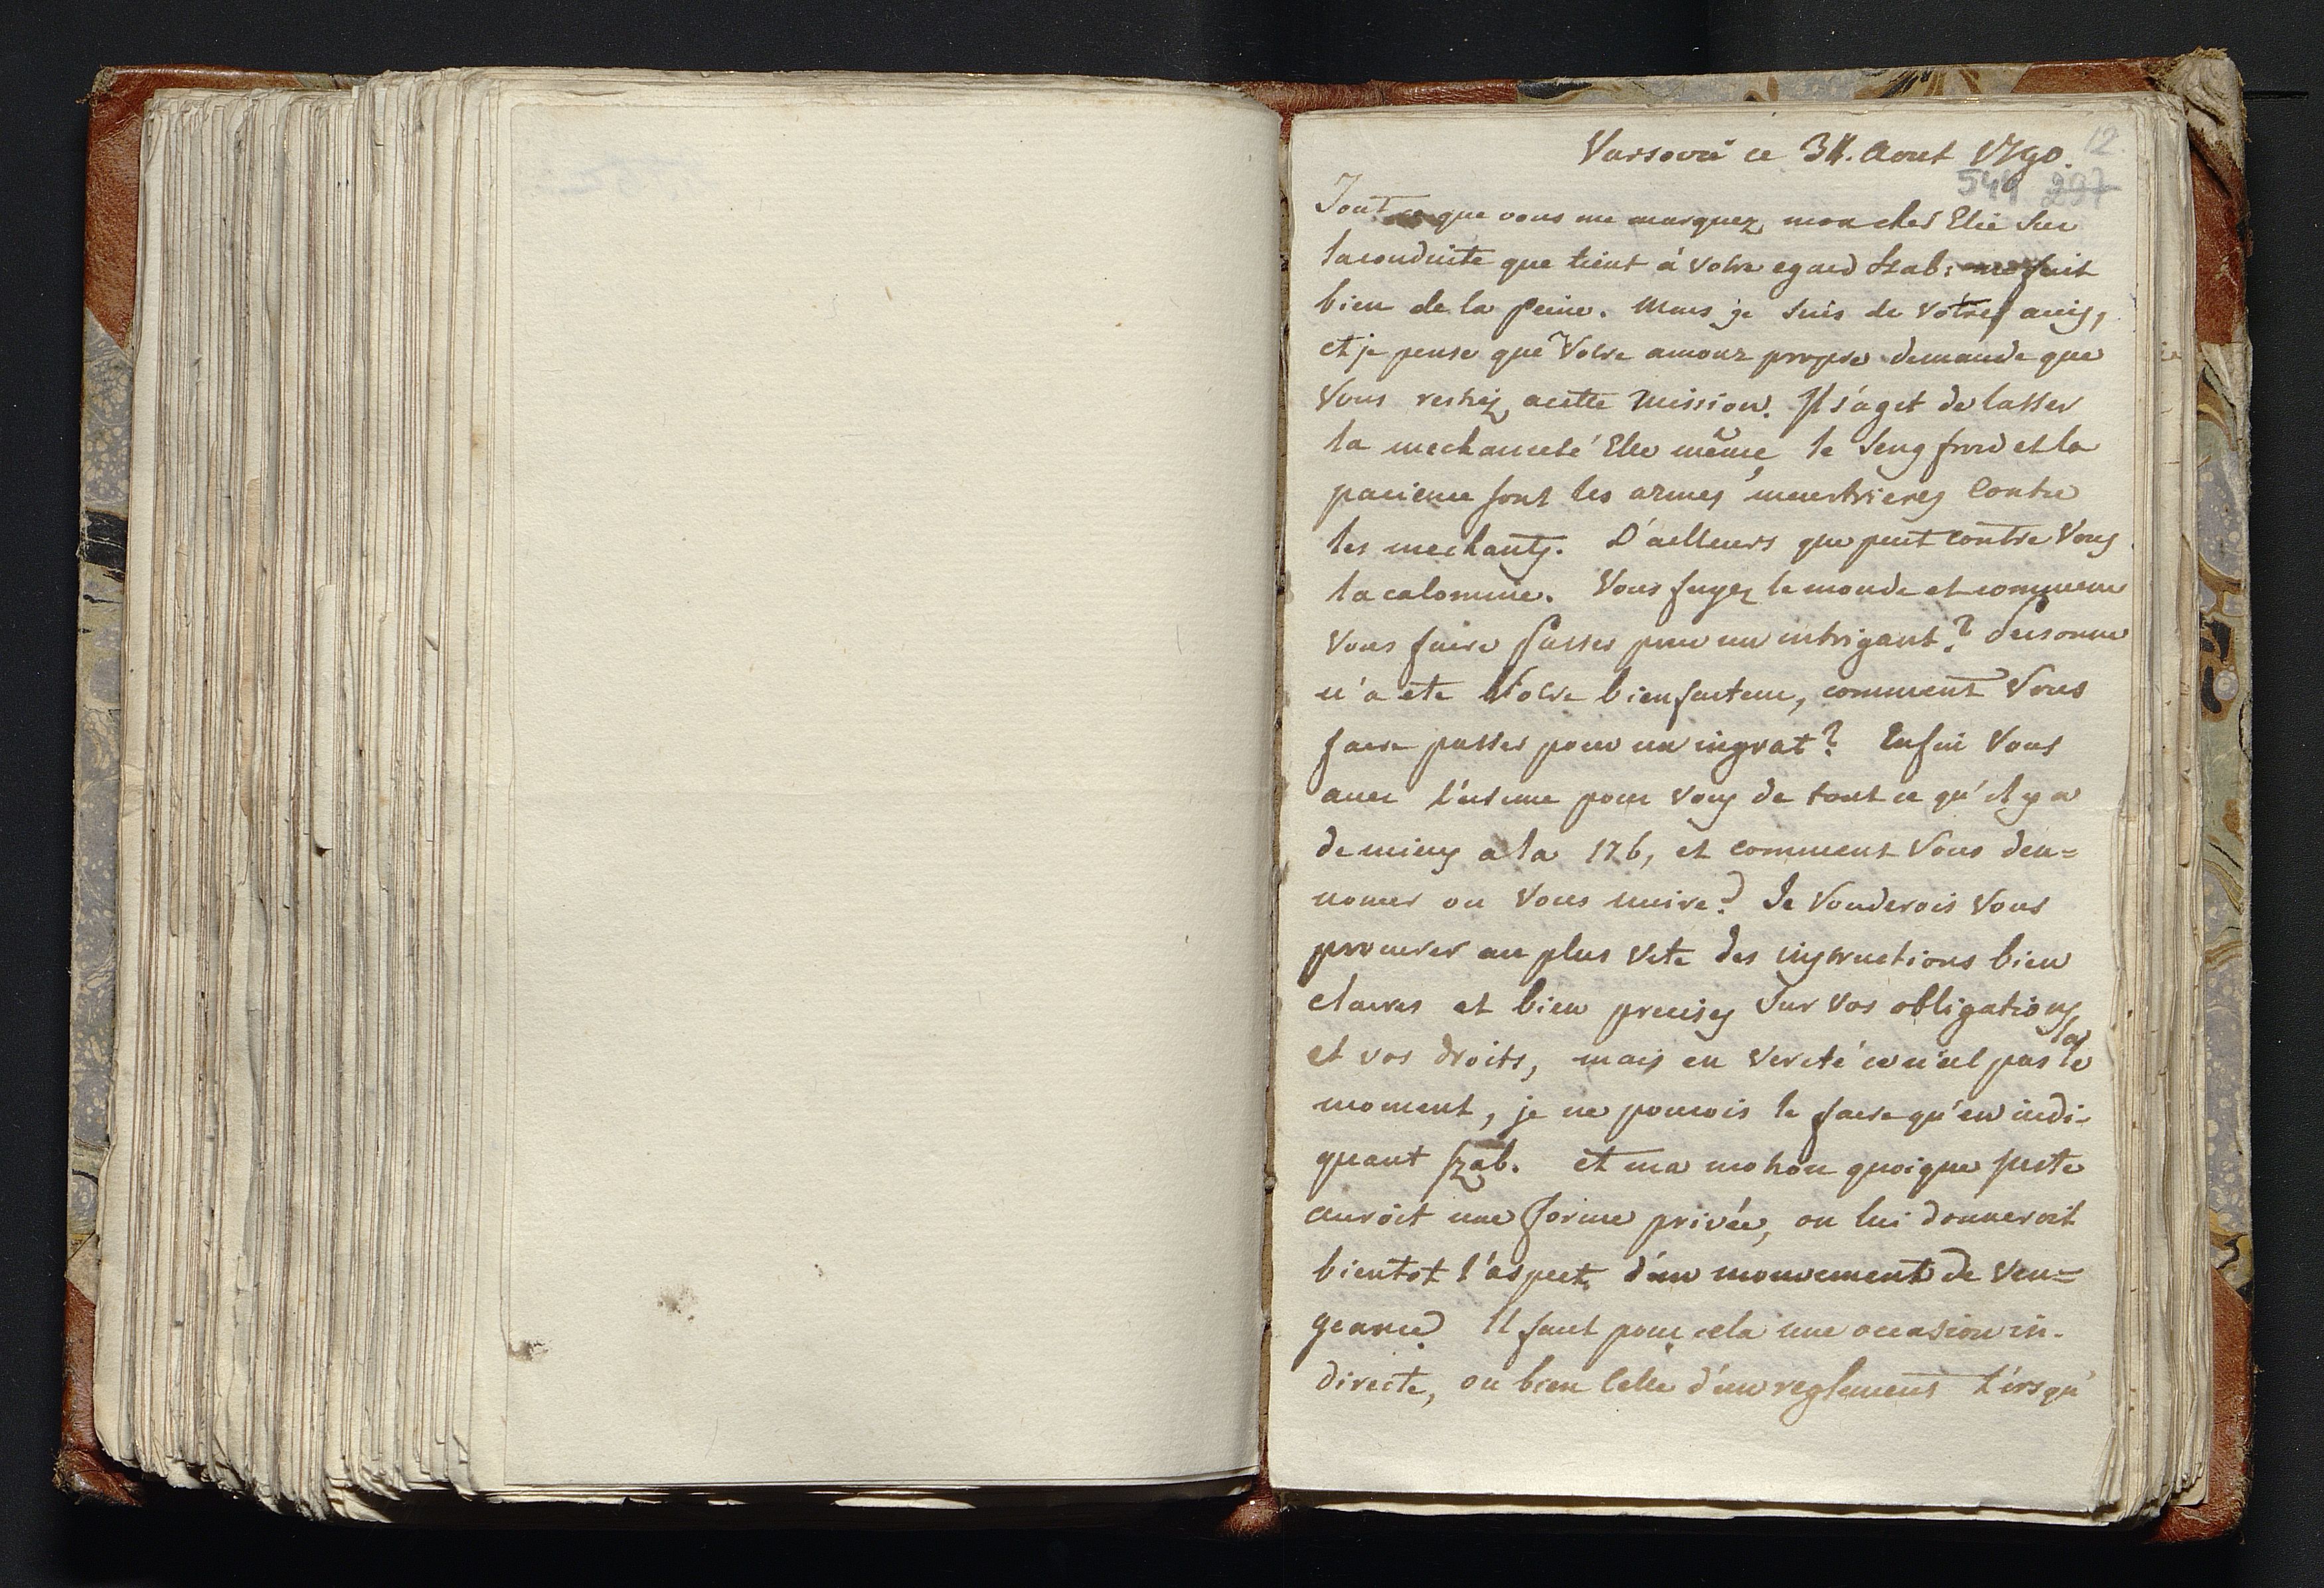 Varsovie ce 31. Aout 1790.
12.
544 297
Tout ce que vous me marquez mon cher Elie sur
la conduite que tient à votre egard Szab: me fait
bien de la peine. Mais je suis de votre avis,
et je pense que Votre amour propre demande que
Vous restiez a cette Mission. Il s'agit de lasser
la mechanceté Elle même, le seng froid et la
pacience sont les armes meurtrieres contre
les mechants. D'ailleurs que peut contre Vous
la calomnie. Vous fuyez le monde et comment
Vous faire passer pour un intrigant? Personne
n'a ete Votre bienfaiteur, comment Vous
faire passer pour un ingrat? Enfin Vous
avez l'estime pour vous de tout ce qu'il y a
de mieux a la 176, et comment Vous den=
noncer ou Vous nuire? Je Vouderois Vous
procurer au plus vite des instructions bien
claires et bien precises sur vos obligations
et vos droits, mais en verité ce n'est pas le
moment, je ne pourrois le faire qu'en indi-
quant Szab. et ma motion quoique juste
auroit une forme privée, on lui donneroit
bientot l'aspect d'un mouvement de ven=
geance. Il faut pour cela une occasion in-
directe, ou bien celle d'un reglement lorsqu'